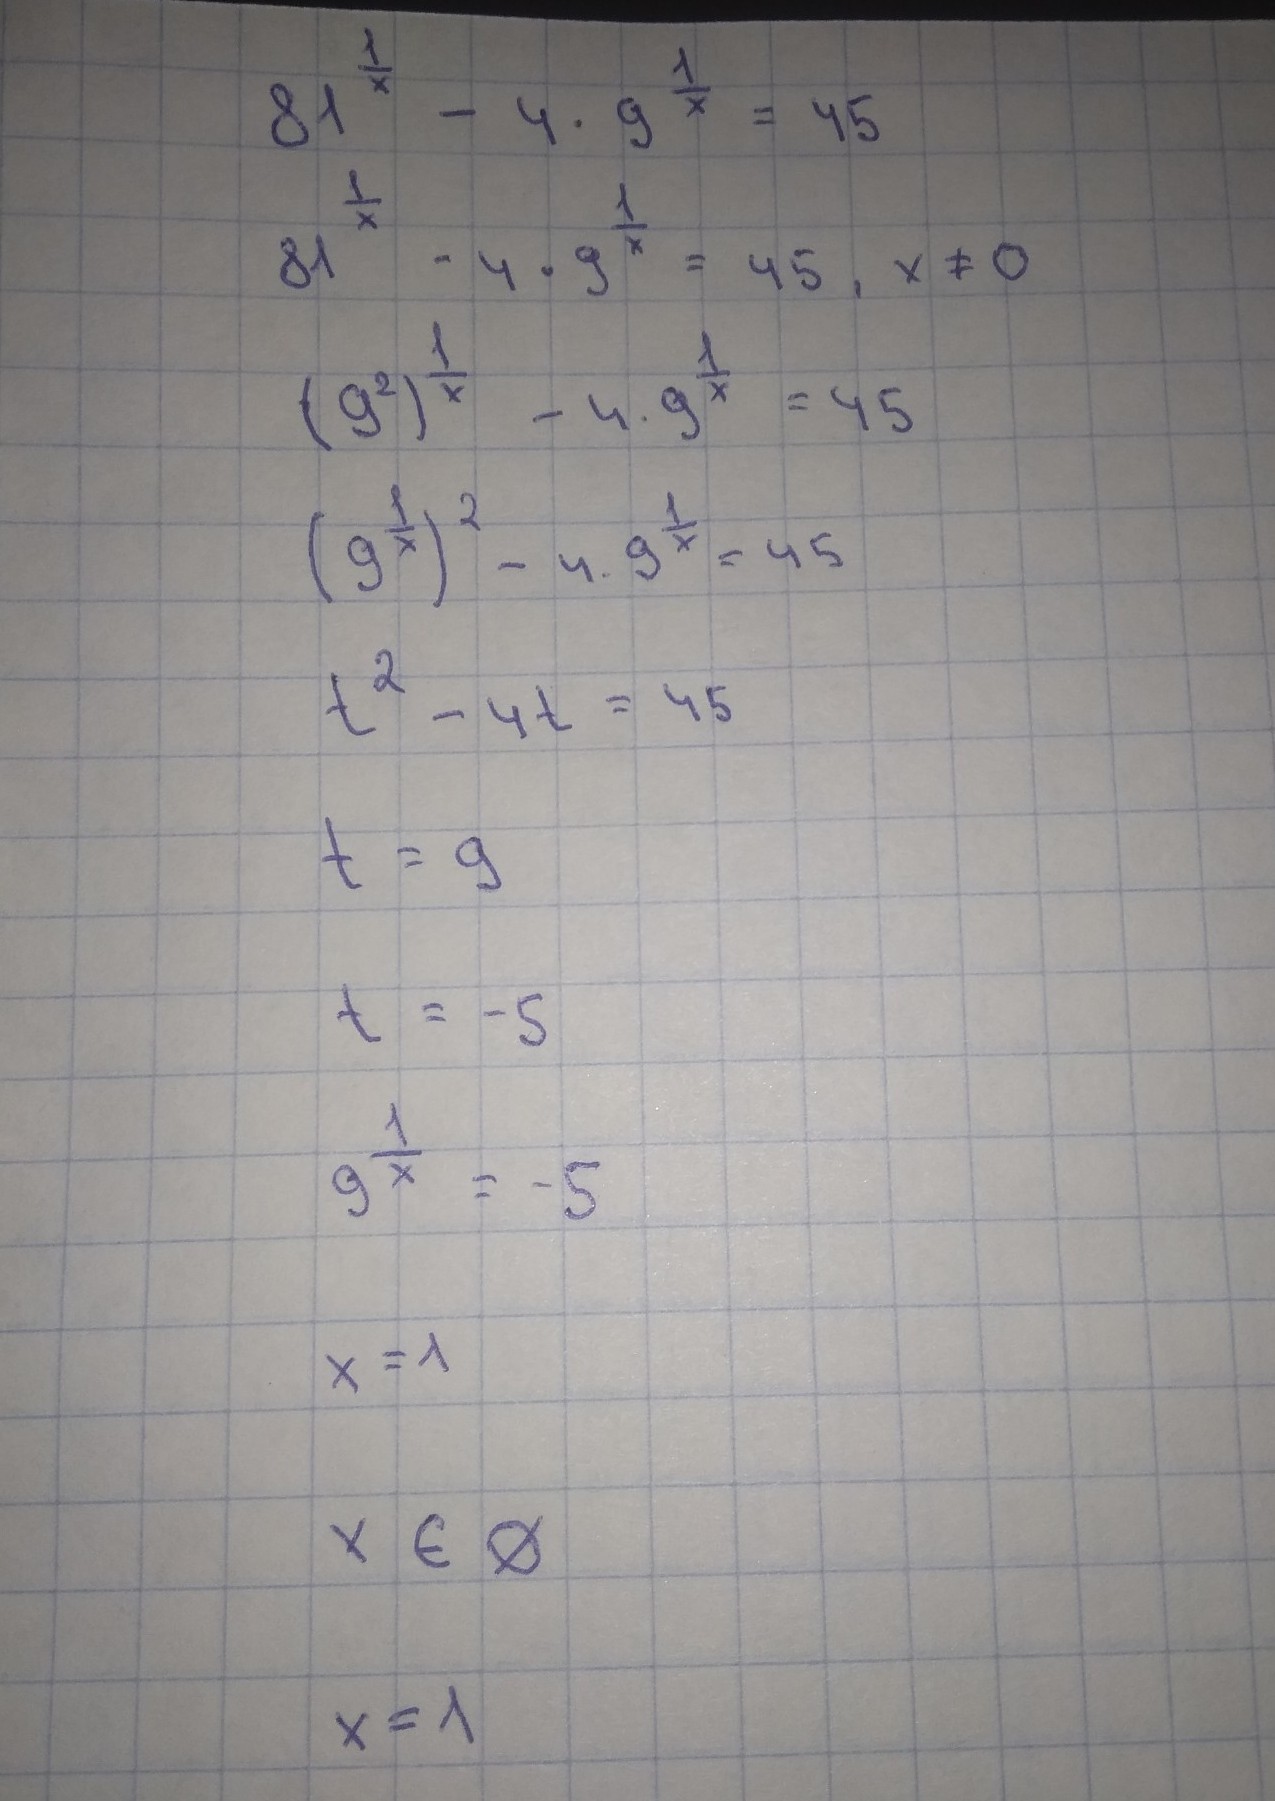 81^(1/x) - 4 · 9^(1/x) = 45
81^(1/x) - 4 · 9^(1/x) = 45, x ≠ 0
(9²)^(1/x) - 4 · 9^(1/x) = 45
(9^(1/x))² - 4 · 9^(1/x) = 45
t² - 4t = 45
t = 9
t = -5
9^(1/x) = -5
x = 1
x ∈ ∅
x = 1